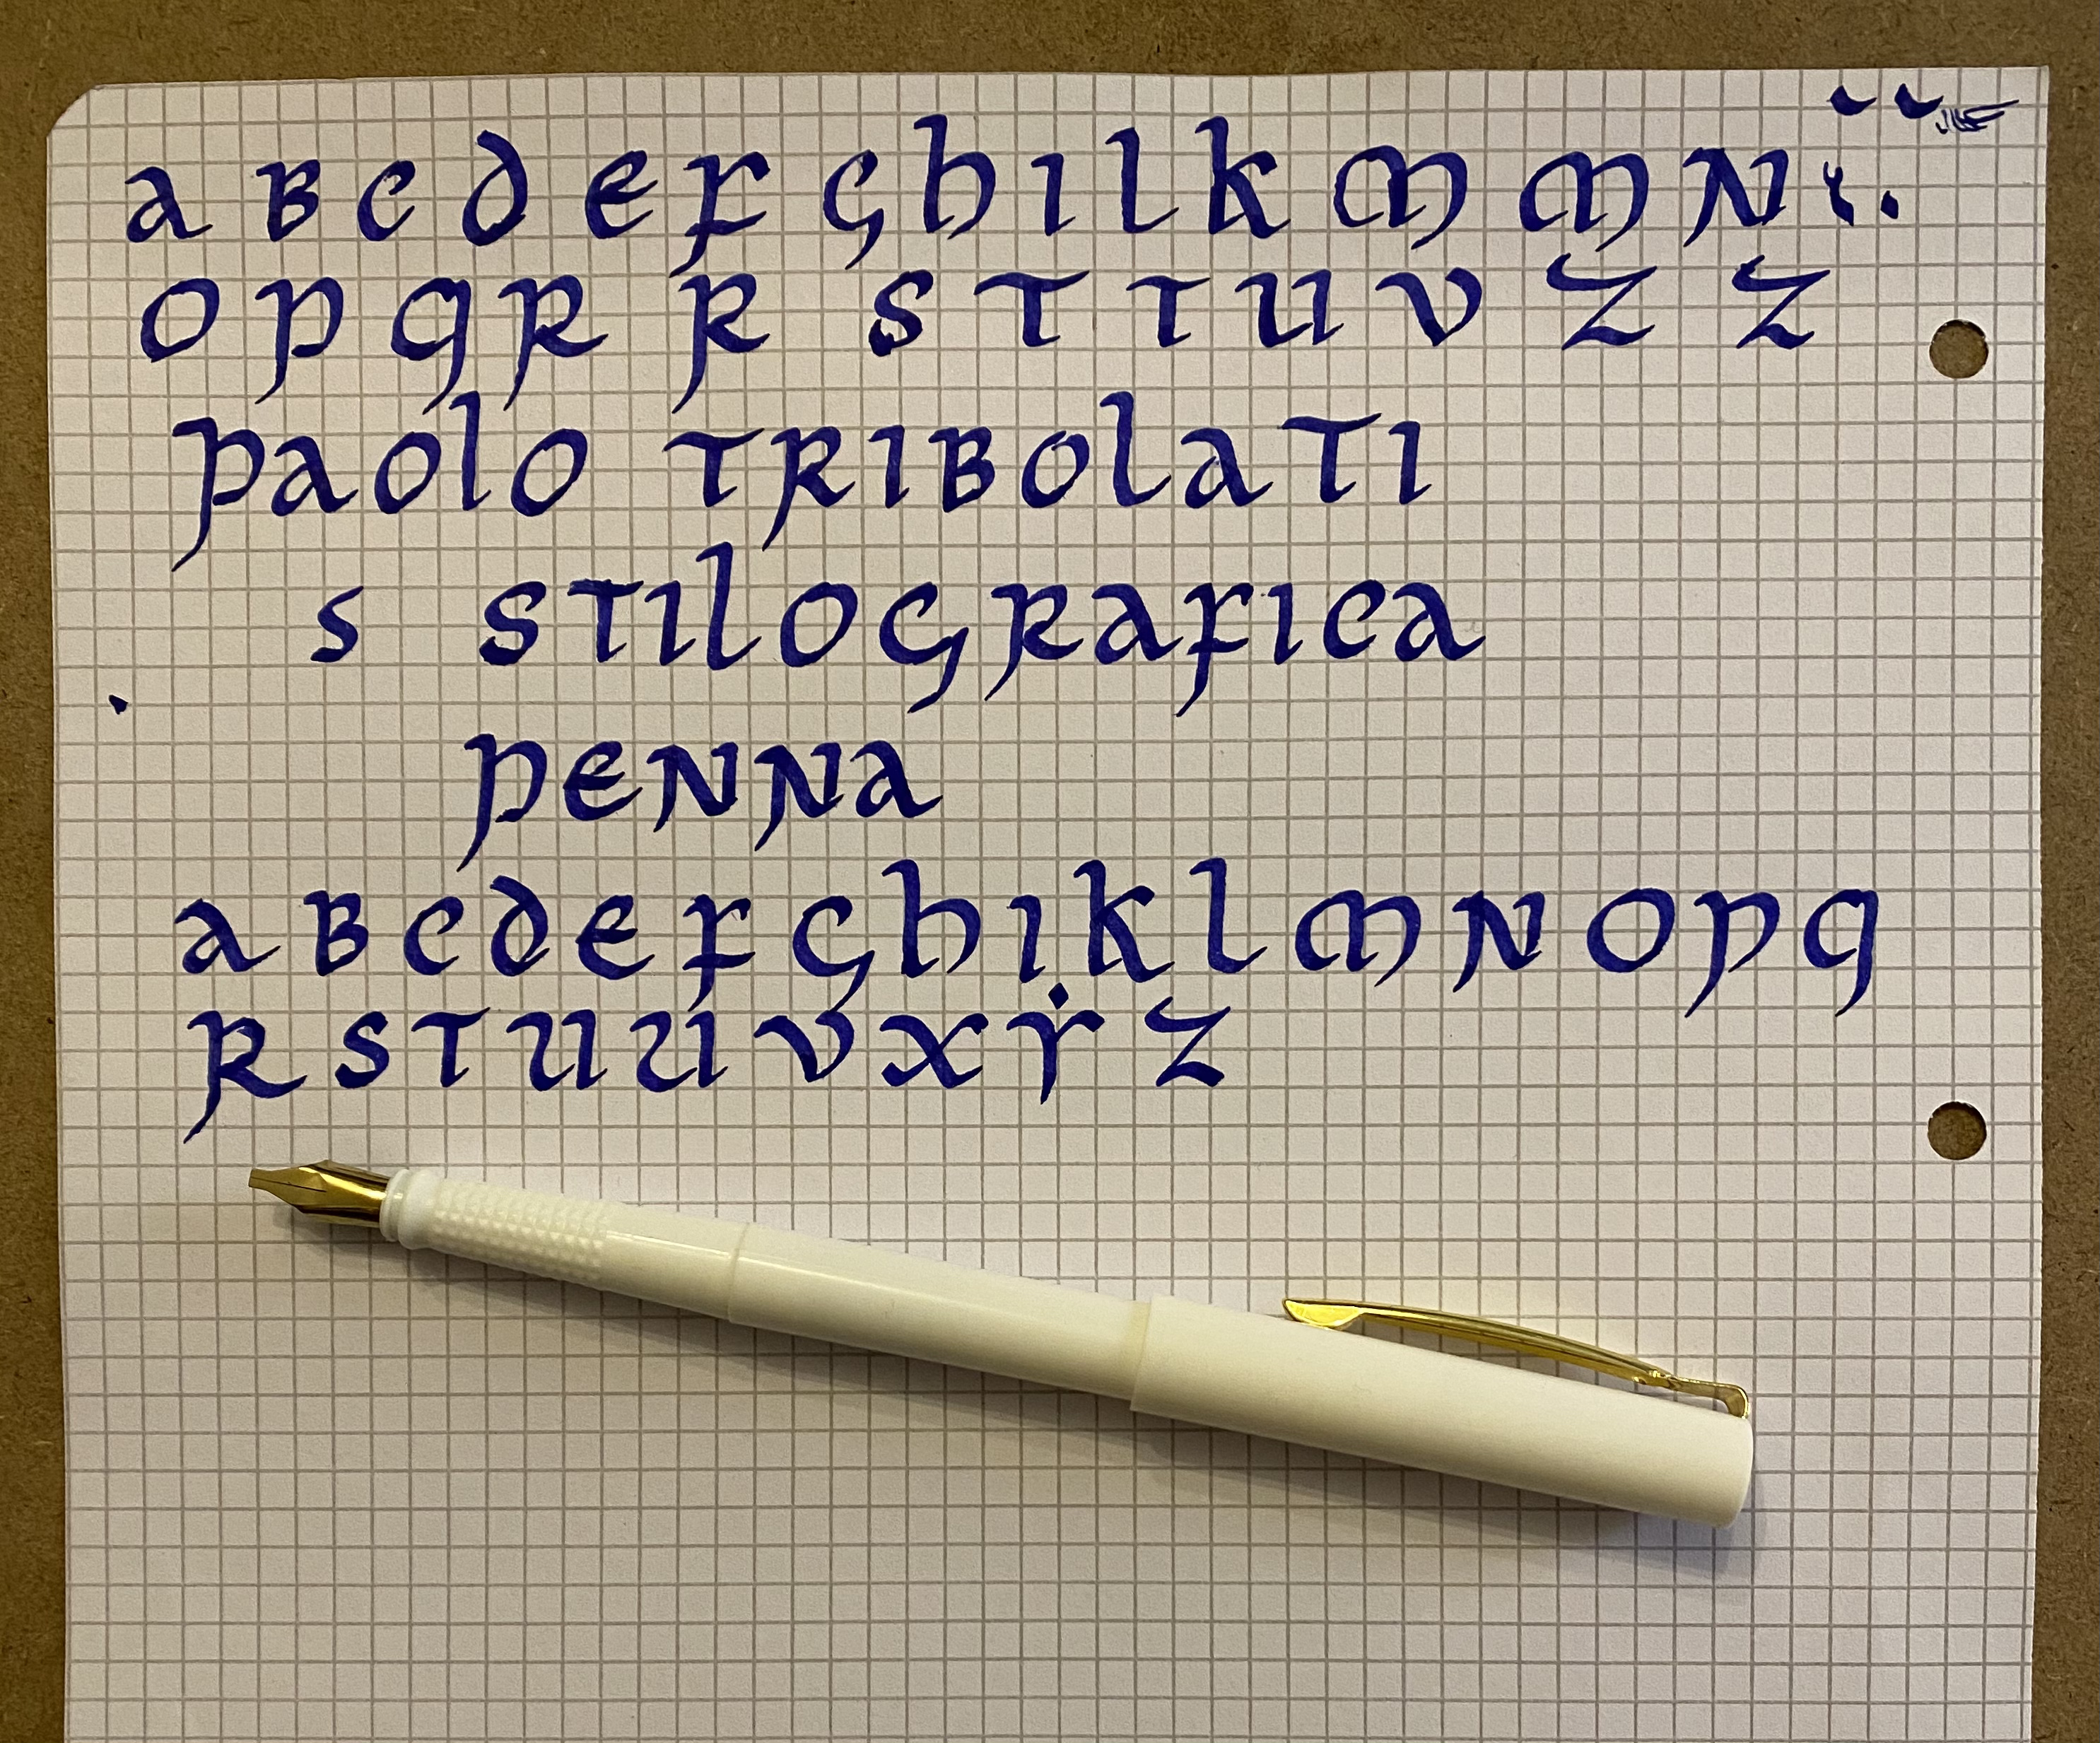 a B c d e f G h i l k m m N
o p q R R S T T u v Z Z
paolo TRIBolaTI
s STIloGRafica
peNNa
a B c d e f G h i k l m N o p q
R S T u u v x Y Z